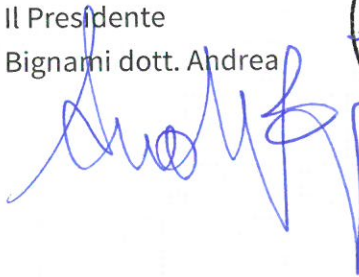 Il Presidente
Bignami dott. Andrea